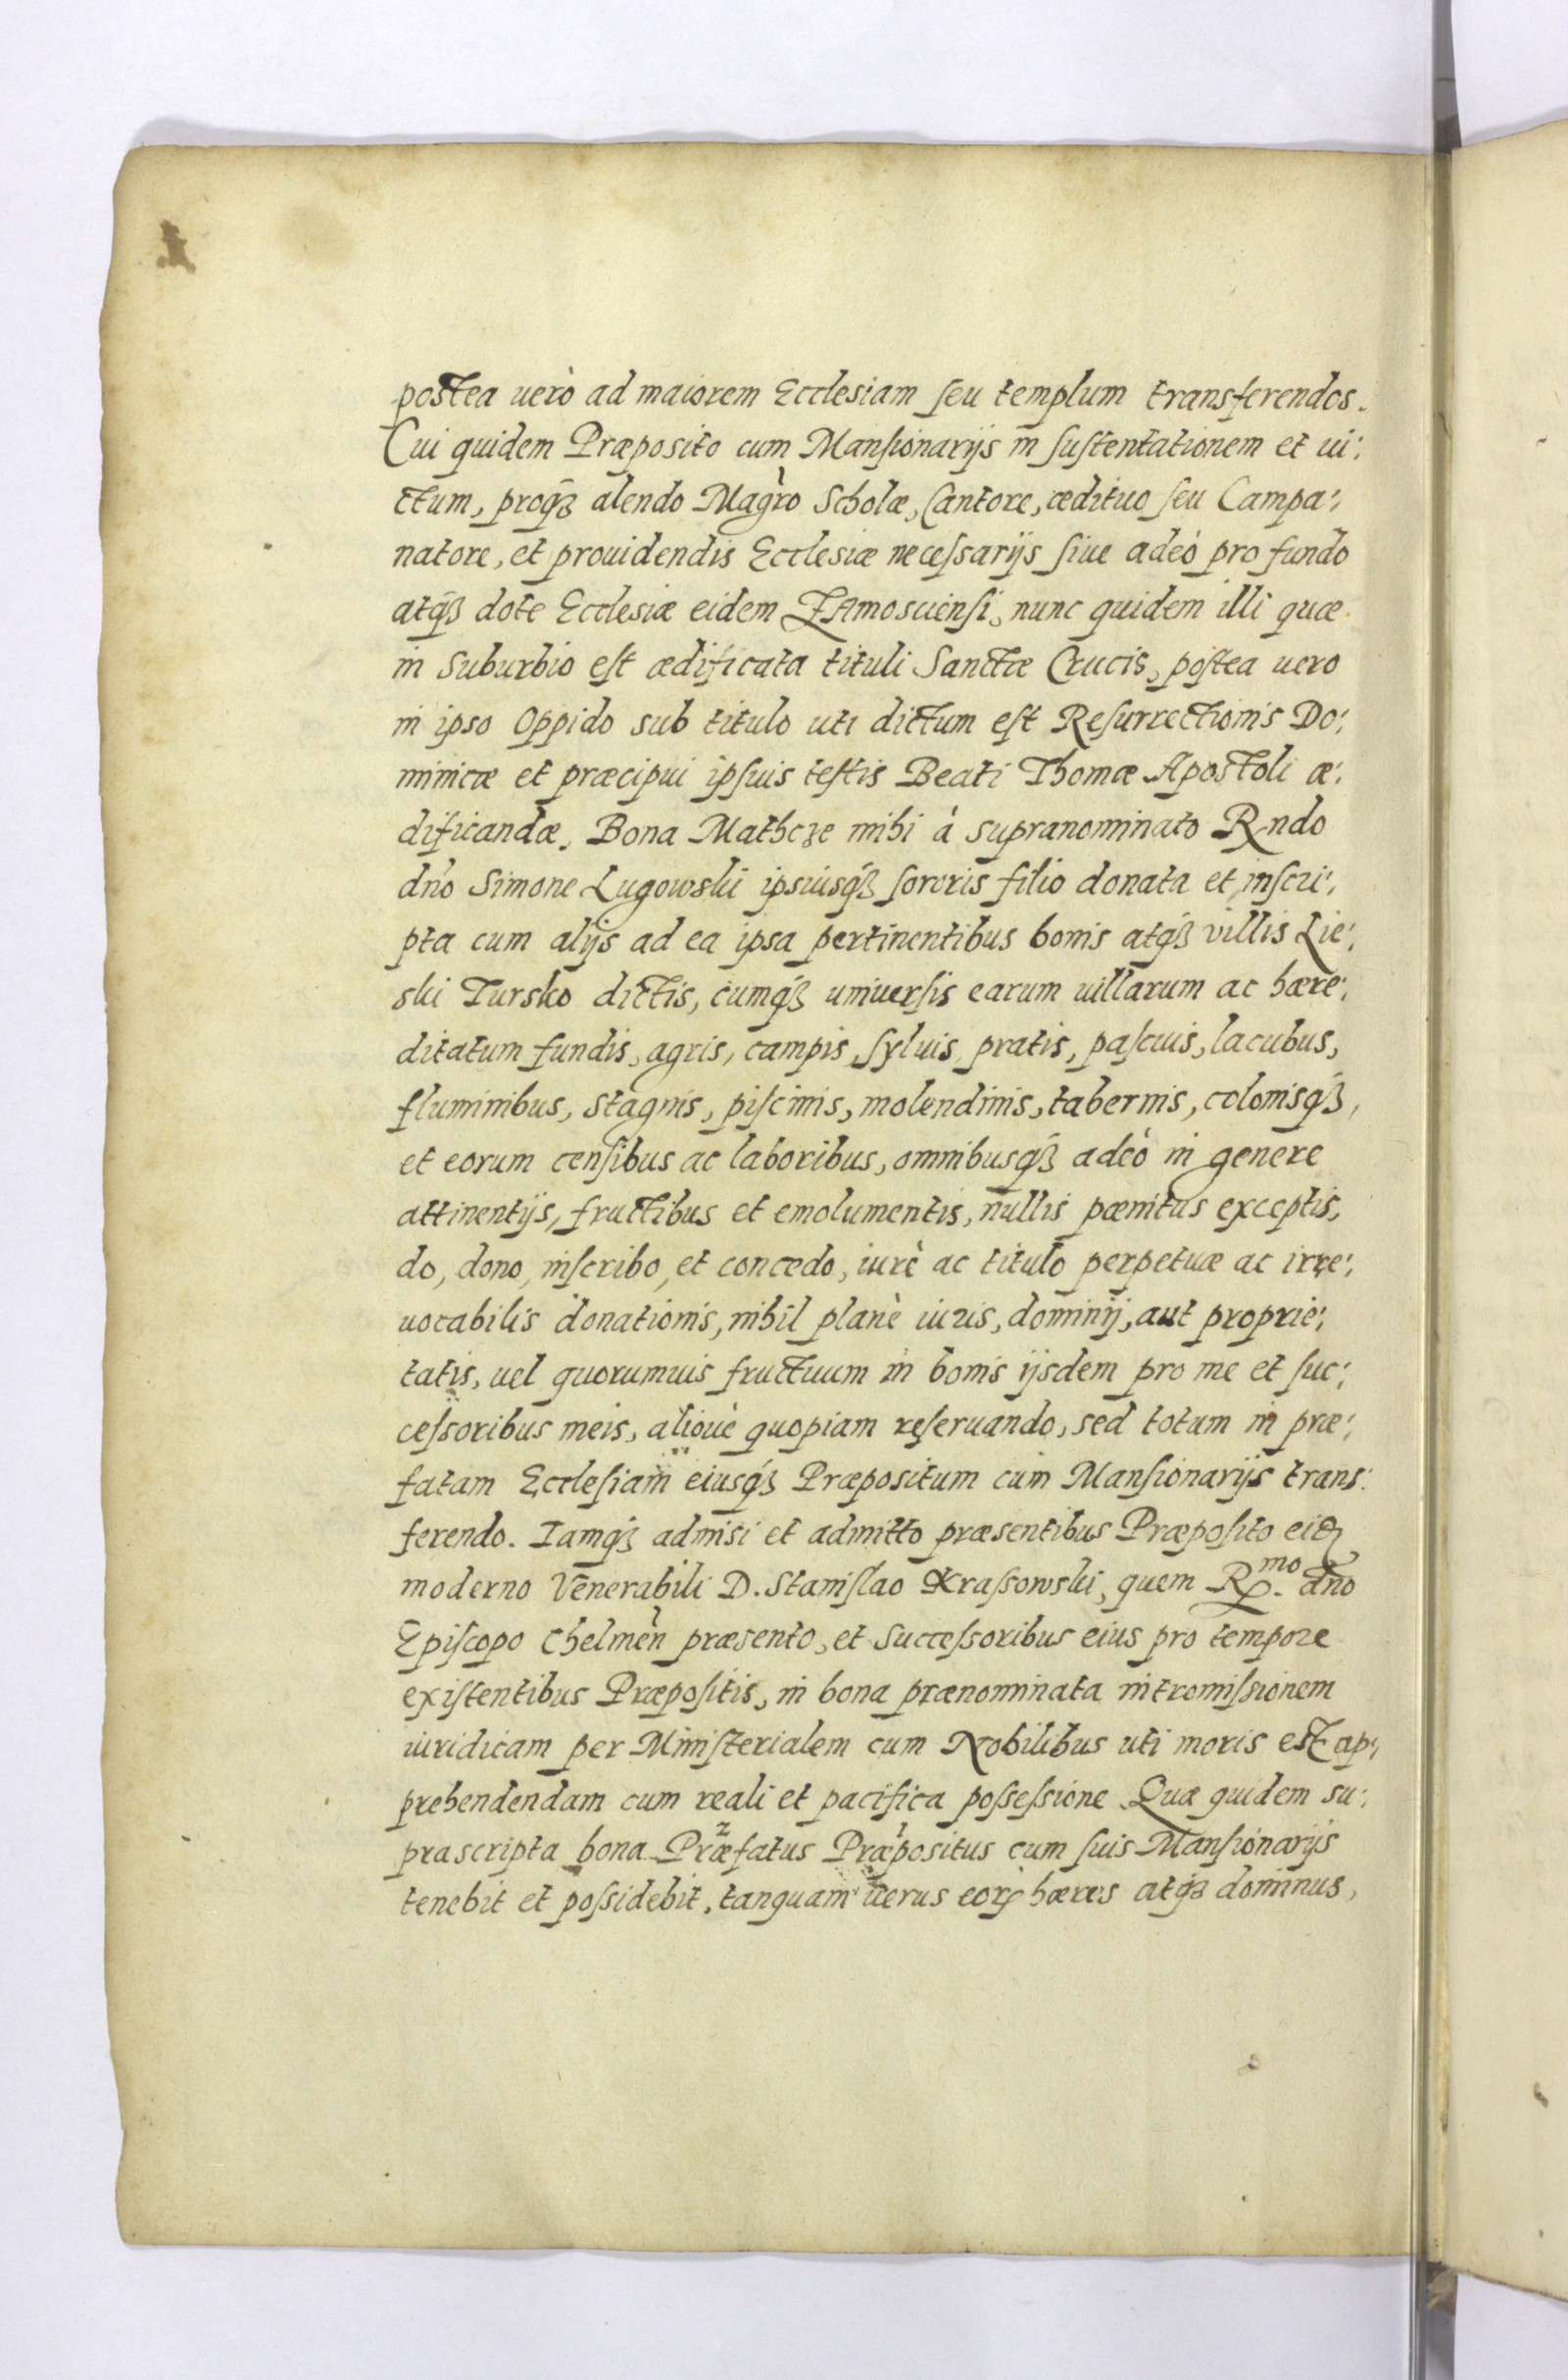 postea uerò ad maiorem Ecclesiam seu templum transferendos.
Cui quidem Præposito cum Mansionarijs in sustentationem et ui:
ctum, proq3 alendo Magr̀o Scholæ, Cantore, ædituo seu Campa:
natore, et prouidendis Ecclesiæ necessarijs siue adeò pro fundo
atq3 dote Ecclesiæ eidem ZAmoscensi, nunc quidem illi quæ
in Suburbio est ædificata tituli Sanctæ Crucis, postea uero
in ipso Oppido sub titulo uti dictum est Resurrectionis Do:
minicæ et præcipui ipsius testis Beati Thomæ Apostoli æ:
dificandæ, Bona Mathcze mihi à supranominato Rndo
dno Simone Lugowski ipsiusq3 sororis filio donata et inscri:
pta cum alijs ad ea ipsa pertinentibus bonis atq3 villis Lie:
ski Tursko dictis, cumq3 uniuersis earum uillarum ac hære:
ditatum fundis, agris, campis, syluis, pratis, pascuis, lacubus,
fluminibus, stagnis, piscinis, molendinis, tabernis, colonisq3,
et eorum censibus ac laboribus, omnibusq3 adeò in genere
attinentijs, fructibus et emolumentis, nullis pænitus exceptis,
do, dono, inscribo, et concedo, iurè ac titulo perpetuæ ac irre:
uocabilis donationis, nihil planè iuris, dominij, aut proprie:
tatis, uel quorumuis fructuum in bonis ijsdem pro me et suc:
cessoribus meis, alioue quopiam reseruando, sed totum in præ:
fatam Ecclesiam eiusq3 Præpositum cum Mansionarijs trans:
ferendo. Iamq3 admisi et admitto præsentibus Præposito eid
moderno Venerabili D. Stanislao Krassowski, quem R.mo dno
Episcopo Chelmen̄ præsento, et Successoribus eius pro tempore
existentibus Præpositis, in bona prænominata intromissionem
iuridicam per Ministerialem cum Nobilibus uti moris est ap:
prehendendam cum reali et pacifica possessione. Quæ quidem su:
prascripta bona Præfatus Præpositus cum suis Mansionarijs
tenebit et possidebit, tanquam uerus eorꝝ hæres atq3 dominus,